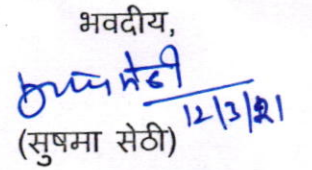 भवदीय,
12/3/21
(सुषमा सेठी)